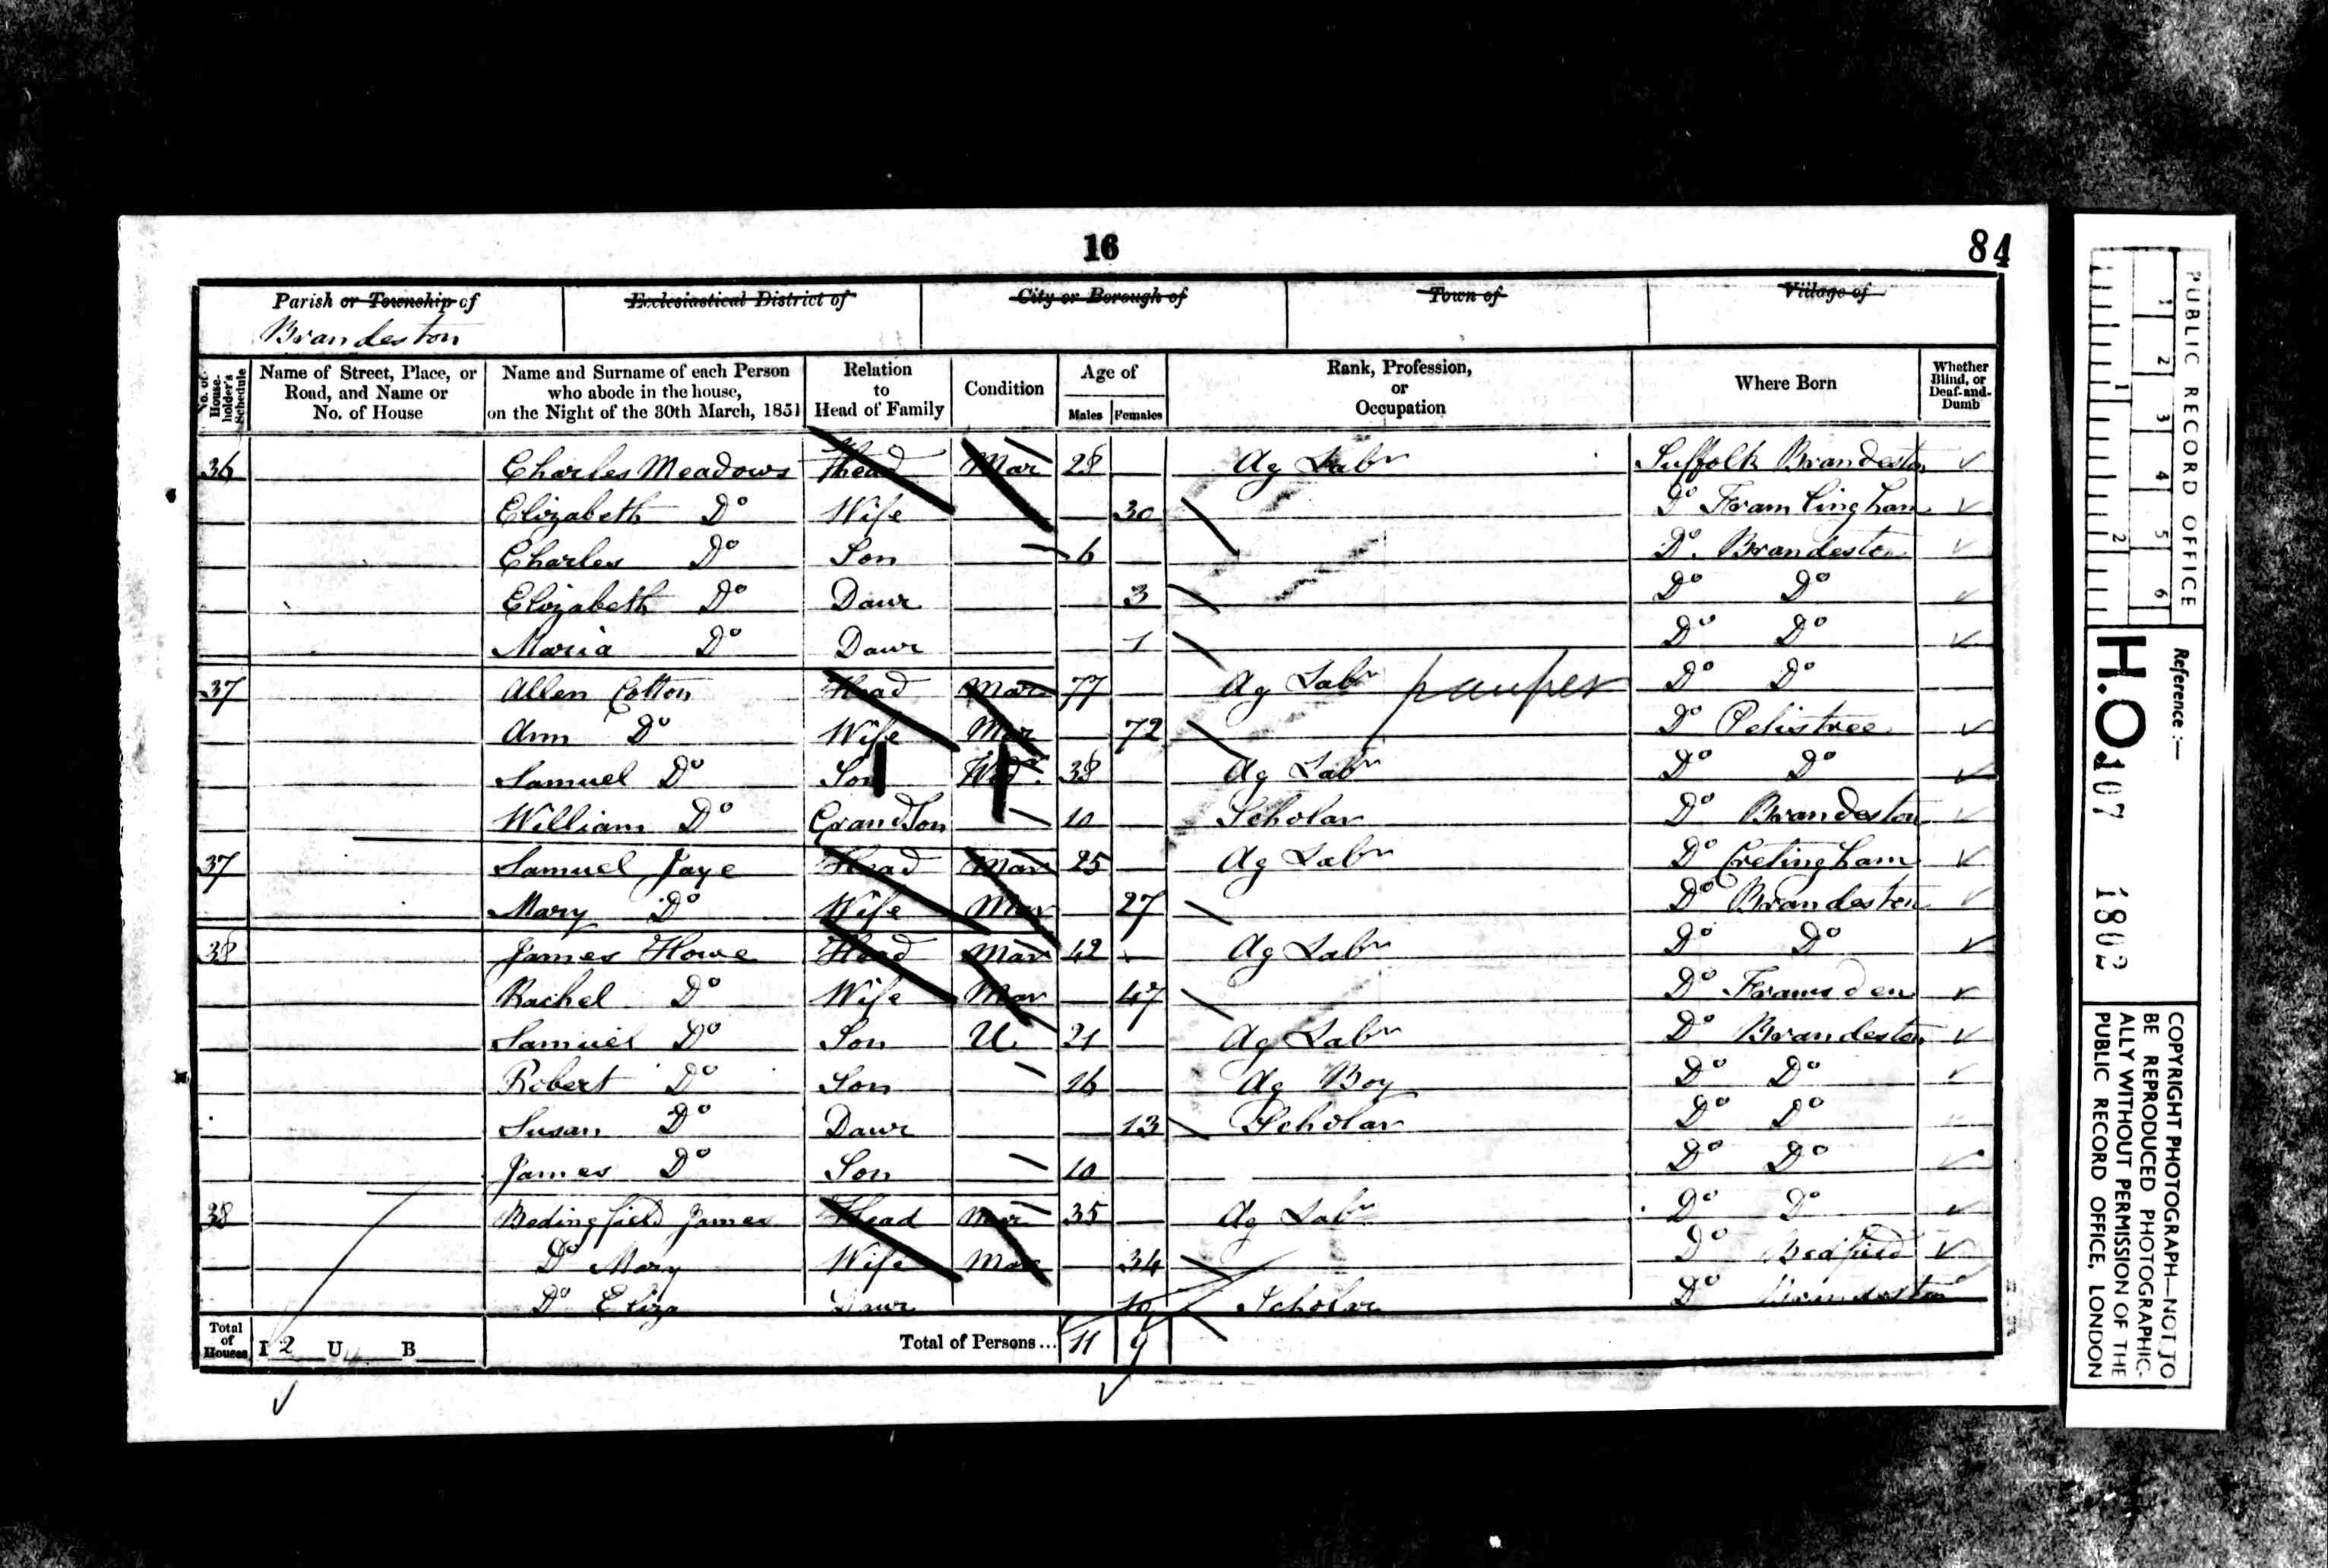 16
84
Parish or Township of
Ecclesiastical District of
City or Borough of
Town of
Village of
Brandeston
No. of House-holder's Schedule
Name of Street, Place, or Road, and Name or No. of House
Name and Surname of each Person who abode in the house, on the Night of the 30th March, 1851
Relation to Head of Family
Condition
Age of
Males
Females
Rank, Profession, or Occupation
Where Born
Whether Blind, or Deaf-and-Dumb
36 Charles Meadows Head Mar 28 Ag Labr Suffolk Brandeston
Elizabeth Do Wife 30 Do Framlingham
Charles Do Son 6 Do. Brandeston
Elizabeth Do Dawr 3 Do Do
Maria Do Dawr 1 Do Do
37 Allen Cotton Head Mar 77 Ag Labr pauper Do Do
Ann Do Wife Mar 72 Do Petistree
Samuel Do Son Wid. 38 Ag Labr Do Do
William Do GrandSon 10 Scholar Do Brandeston
37 Samuel Jaye Head Mar 25 Ag Labr Do Cretingham
Mary Do Wife Mar 27 Do Brandeston
38 James Howe Head Mar 42 Ag Labr Do Do
Rachel Do Wife Mar 47 Do Framsden
Samuel Do Son U 21 Ag Labr Do Brandeston
Robert Do Son 16 Ag Boy Do Do
Susan Do Dawr 13 Scholar Do Do
James Do Son 10 Do Do
38 Bedingfield James Head Mar 35 Ag Labr Do Do
Do Mary Wife Mar 34 Do Bedfield
Do Eliza Dawr 10 Scholar Do Brandeston
Total of Houses I 2 U B
Total of Persons... 11 9
PUBLIC RECORD OFFICE
1 2 3 4 5 6
1 2
Reference :—
H.O. 107 1802
COPYRIGHT PHOTOGRAPH—NOT TO
BE REPRODUCED PHOTOGRAPHIC-
ALLY WITHOUT PERMISSION OF THE
PUBLIC RECORD OFFICE, LONDON